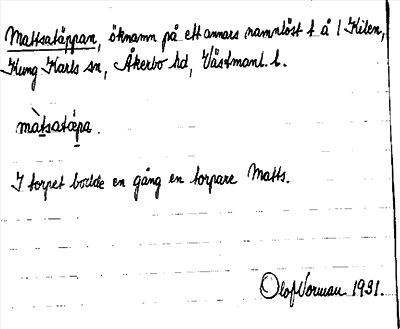 Mattsatäppan, öknamn på ett annars namnlöst t å / Kilen,
Kung Karls sn, Åkerbo hd, Västmanl. l.
màtsatäpa.
I torpet bodde en gång en torpare Matts.
Olof Norman 1931.